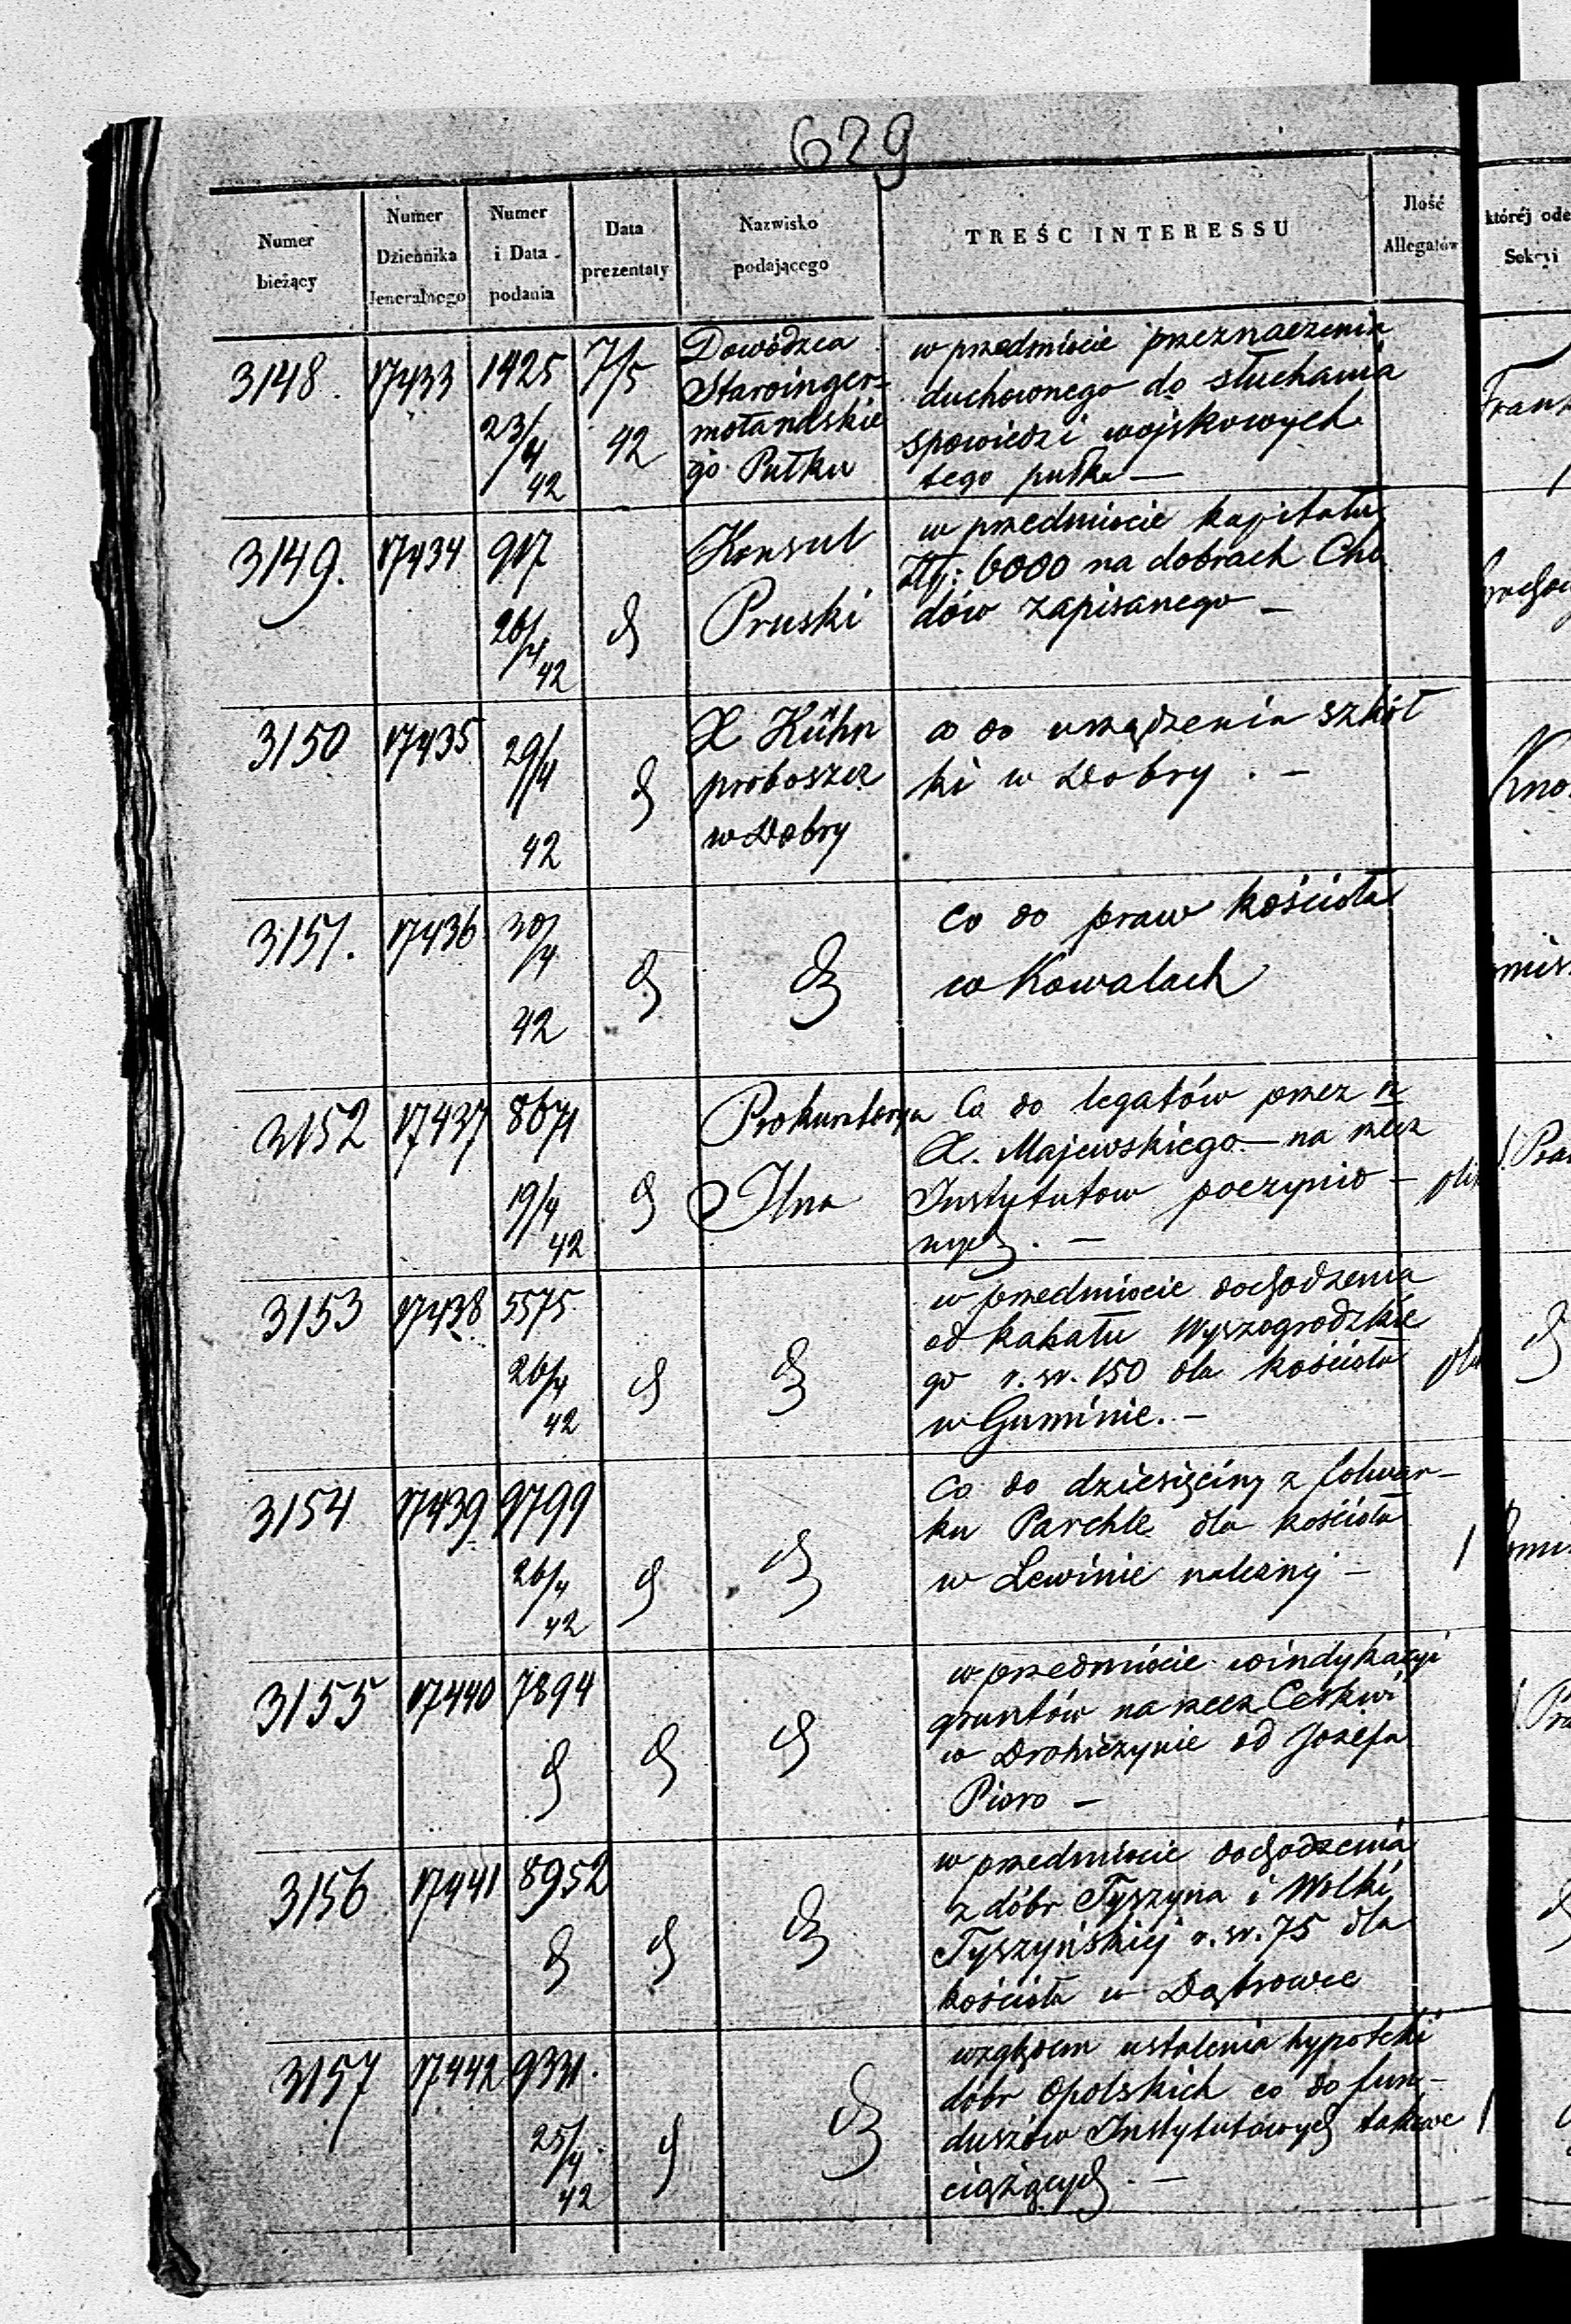 629
Numer bieżący
Numer Dziennika Jeneralnego
Numer i Data podania
Data prezentaty
Nazwisko podającego
TREŚC INTERESSU
Jlość Allegatów
któréj ode
Sekcyi
3148. 17433 1425 23/4 42 7/5 42
Dowódzca
Staroinger-
mołandskie
go Pułku
w przedmiocie przeznaczenia
duchownego do słuchania
spowiedzi wojskowych
tego pułku —
3149. 17434 917 26/4 42 d
Konsul
Pruski
w przedmiocie kapitału
Złp: 6000 na dobrach Cho
dów zapisanego —
3150 17435 29/4 42 d
X Kühn
proboszcz
w Dobry
co do urządzenia szkół
ki w Dobry . —
3151. 17436 30/4 42 d
d
Co do praw kościoła
w Kowalach
3152 17437 8671 19/4 42 d
Prokuratorya
Co do legatów przez n
X. Majewskiego — na rzecz
Instytutow poczynio —
nych . —
3153 17438 5575 26/4 42 d
d
w przedmiocie dochodzenia
od kahału Wyszogrodzkie
go r. sr. 150 dla kościoła
w Guminie. —
3154 17439 9799 26/4 42 d
d
Co do dziesięciny z folwar —
ku Parchle dla kościoła
w Lewinie należnej —
1
3155 17440 7894 d d
d
w przedmiocie windykacyi
gruntów na rzecz Cerkwi
w Drohiczynie od Józefa
Pioro —
3156 17441 8952 d d
d
w przedmiocie dochodzenia
z dóbr Tyszyna i Wolki
Tyszyńskiej r. sr. 75 dla
kościoła w Dąbrowie
3157 17442 9331. 25/4 42 d
d
względem ustalenia hypoteki
dóbr Opolskich co do fun —
duszów Instytutowych takowe
ciążących . —
1